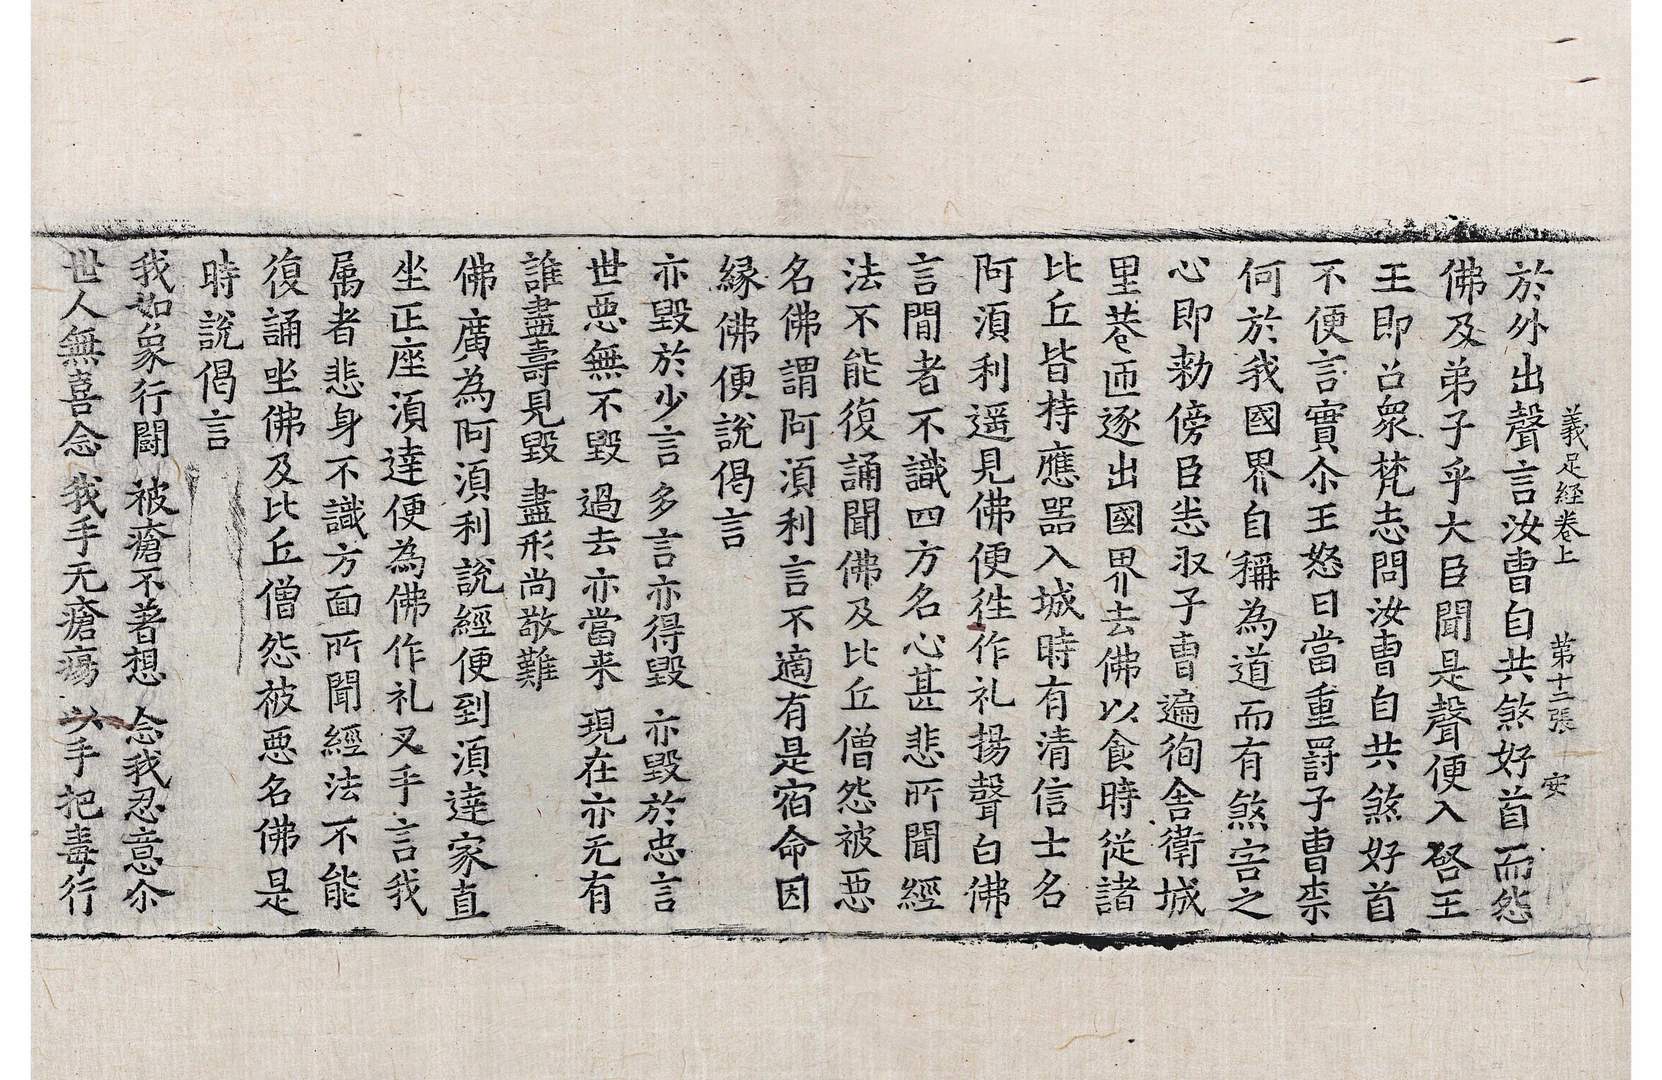 義足經卷上 第十二張 安
於外出聲言汝曹自共煞好首而怨
佛及弟子乎大臣聞是聲便入啓王
王即召衆梵志問汝曹自共煞好首
不便言實尒王怒曰當重罸子曹柰
何於我國界自稱為道而有煞害之
心即勑傍臣悉収子曹遍徇舍衛城
里巷迊逐出國界去佛以食時從諸
比丘皆持應器入城時有清信士名
阿湏利遥見佛便徃作礼揚聲白佛
言聞者不識四方名心甚悲所聞經
法不能復誦聞佛及比丘僧怨被惡
名佛謂阿湏利言不適有是宿命因
縁佛便說偈言
亦毀於少言 多言亦得毀 亦毀於忠言
世惡無不毀 過去亦當来 現在亦无有
誰盡壽見毀 盡形尚敬難
佛廣為阿湏利說經便到湏達家直
坐正座湏達便為佛作礼叉手言我
属者悲身不識方面所聞經法不能
復誦坐佛及比丘僧怨被惡名佛是
時說偈言
我如象行鬪 被瘡不著想 念我忍意尒
世人無喜念 我手无瘡瘍 以手把毒行